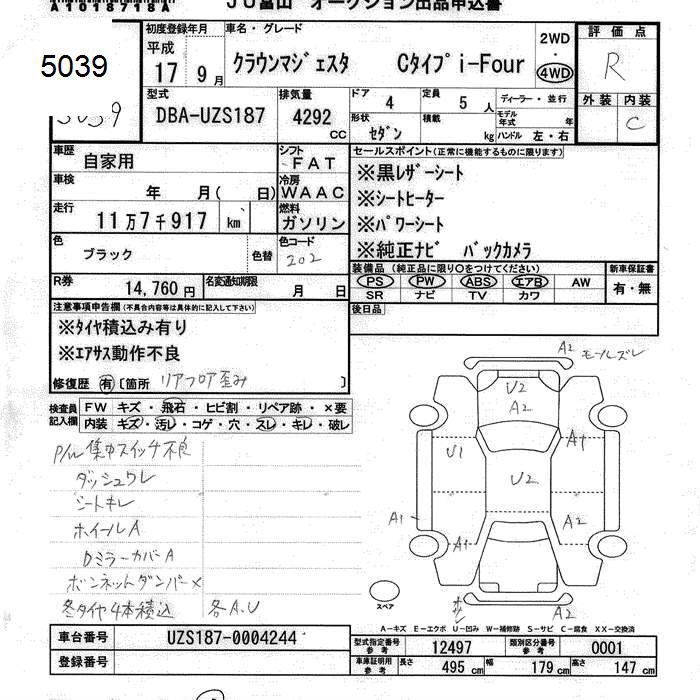 A1018718A JU富山 オークション出品申込書
5039
初度登録年月 車名・グレード 評価点
平成 17 9月 クラウンマジェスタ Cタイプi-Four 2WD ・ 4WD R
型式 排気量 ドア 4 定員 5 人 ディーラー・並行 外装 内装
DBA-UZS187 4292 CC 形状 セダン 積載 kg モデル年式 年 ハンドル 左・右 C
車歴 自家用 シフト FAT セールスポイント(正常に機能するものに限ります)
車検 年 月( 日) 冷房 WAAC ※黒レザーシート
走行 11万7千917 km 燃料 ガソリン ※シートヒーター
※パワーシート
色 ブラック 色替 色コード 202 ※純正ナビ バックカメラ
R券 14,760円 名変通知期限 月 日 装備品(純正品に限り○をつけてください) 新車保証書
PS PW ABS エアB AW 有・無
SR ナビ TV カワ
注意事項申告欄(不具合内容等は具体的に記入して下さい) 後日品
※タイヤ積込み有り
※エアサス動作不良
修復歴 有 〔箇所 リアフロア歪み 〕
A2 モールズレ
検査員記入欄 FW キズ・飛石・ヒビ割・リペア跡・×要
内装 キズ・汚レ・コゲ・穴・スレ・キレ・破レ
U2
A2
P/W集中スイッチ不良
U1 A1
ダッシュワレ
U2
シートキレ
ホイールA
A1 A2
DミラーカバーA
A1
ボンネットダンパー×
冬タイヤ4本積込 各A.U
スペア A2
A－キズ E－エクボ U－凹み W－補修跡 S－サビ C－腐食 XX－交換済
車台番号 UZS187-0004244 型式指定番号 参考 12497 類別区分番号 参考 0001
登録番号 車庫証明用 参考 長さ 495 cm 幅 179 cm 高さ 147 cm